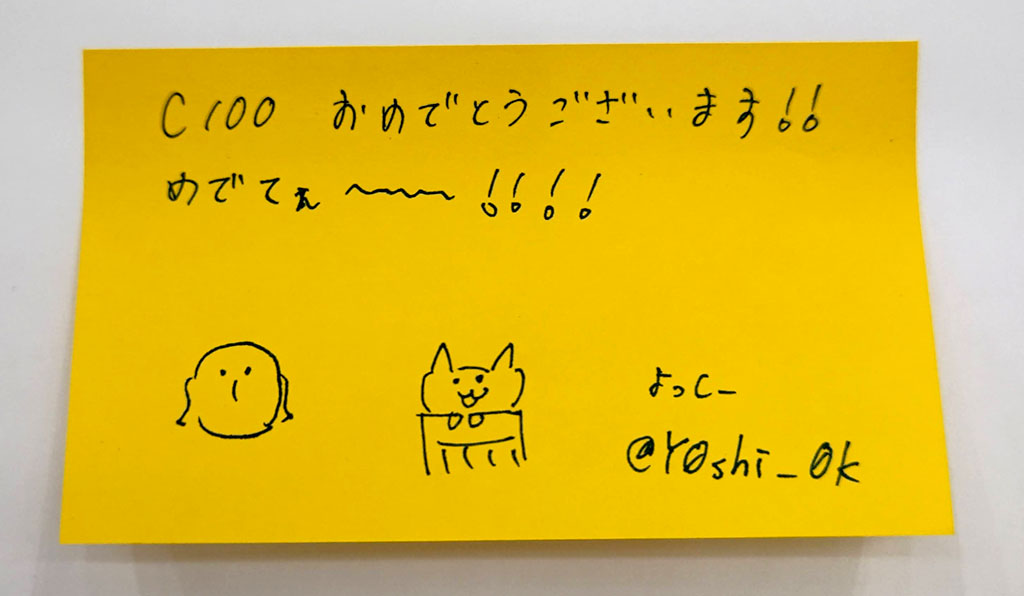 C100 おめでとうございます!!
めでてぇ〜〜〜!!!!
よっしー
@Y0shi_0k